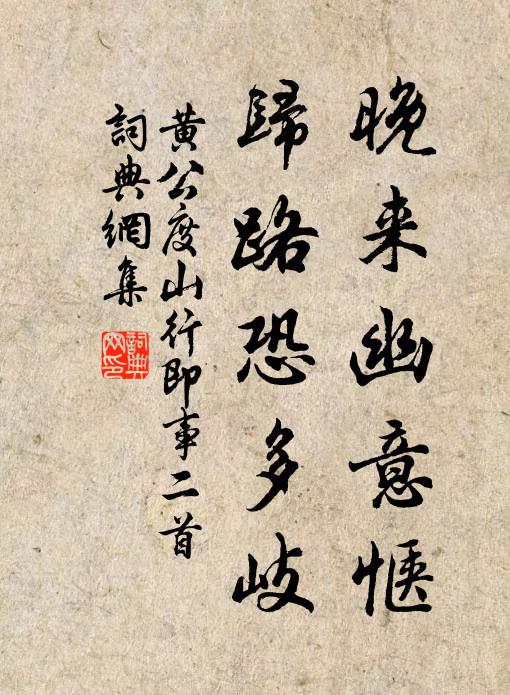 晚来幽意惬
歸路恐多岐
黄公度山行即事二首
詞典網集
詞典网印